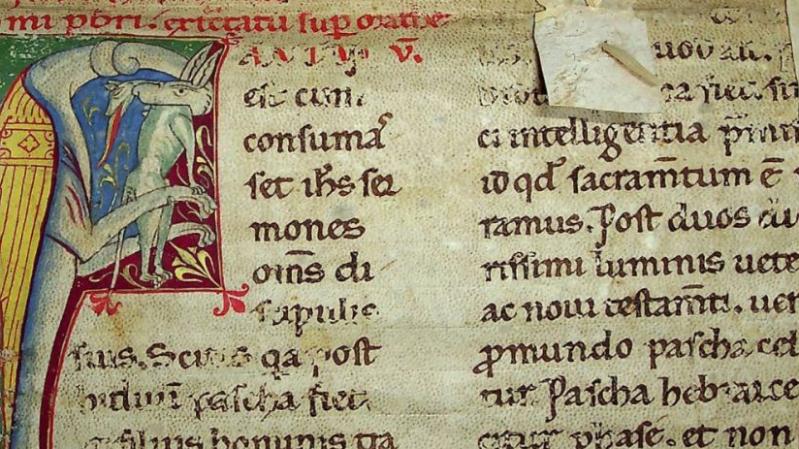 mi pbri. exceptatū sup matheː
FACTŪ
est cum
consūmaꝰ
set ih̄s ser
mones
om̄s di
scipulis
suis. Scitis qa post
biduū pascha fiet
& filius hominis tra
ci intelligentia p̄mit
id qd̓ sacram̄tum ē
ramus. Post duos di
rissimi luminis uete
ac noui testam̄ti. uer
ꝓmundo pascha cel
tur. Pascha hebraice
citur phase. et non